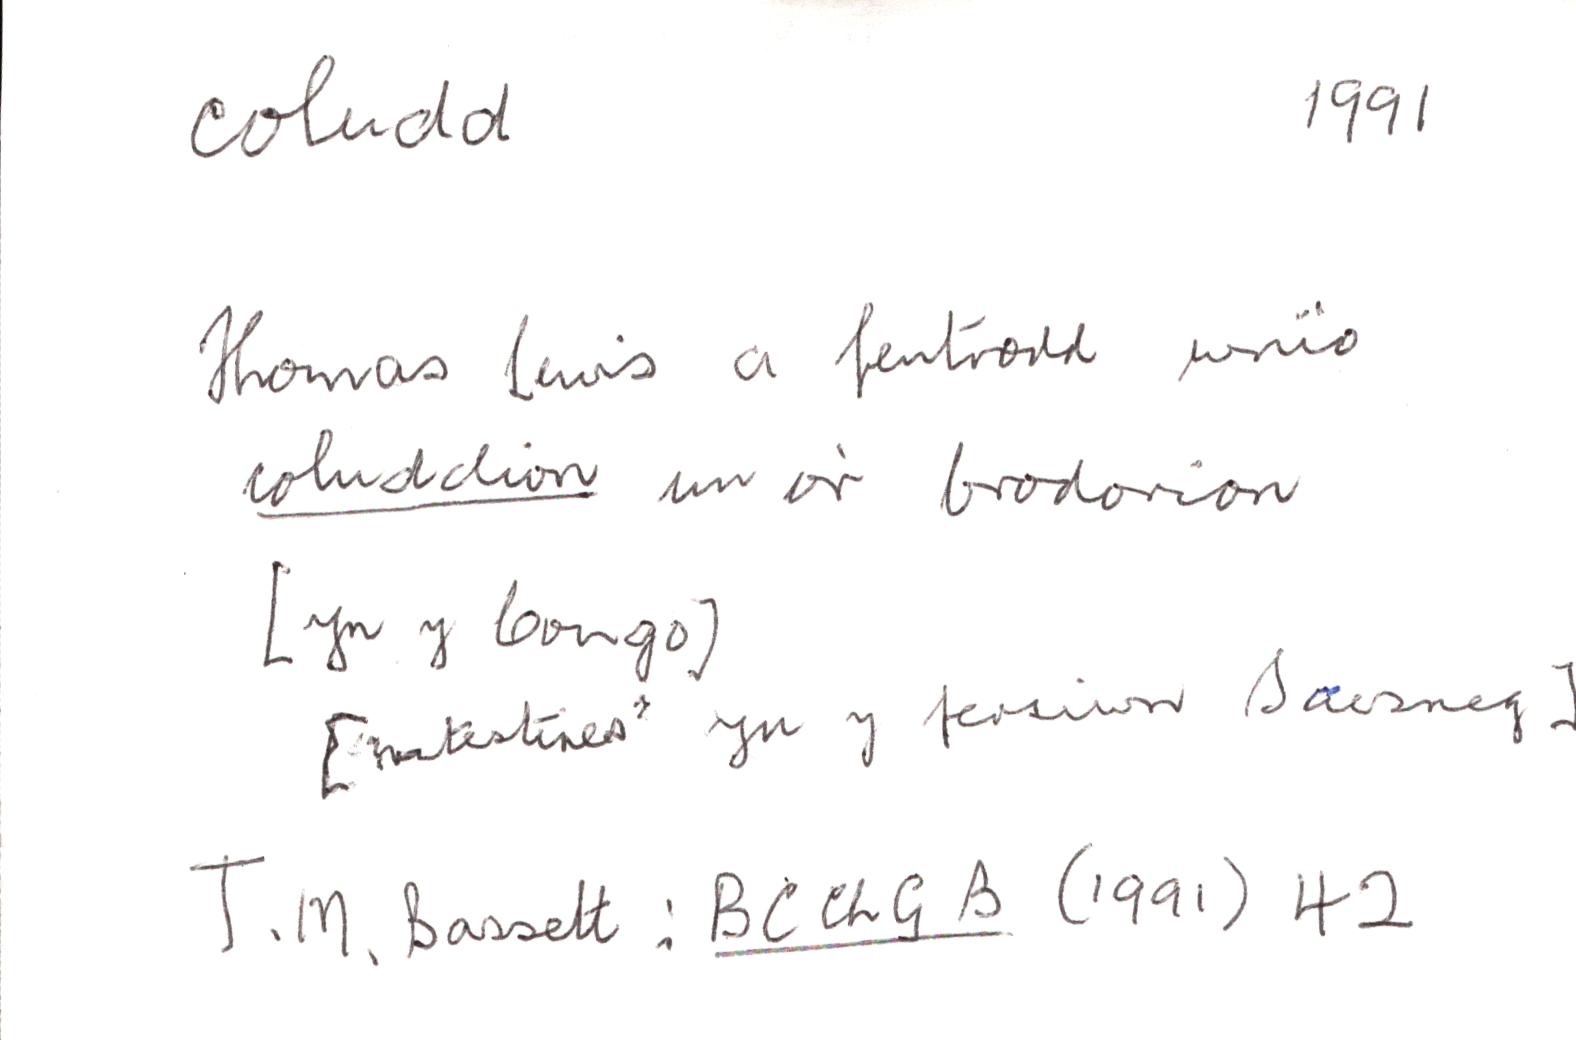 coludd 1991
Thomas Lewis a fentrodd wnïo
coluddion un o'r brodorion
[yn y Congo]
["intestines" yn y fersiwn Saesneg]
T. M. Bassett : BCChGB (1991) 42